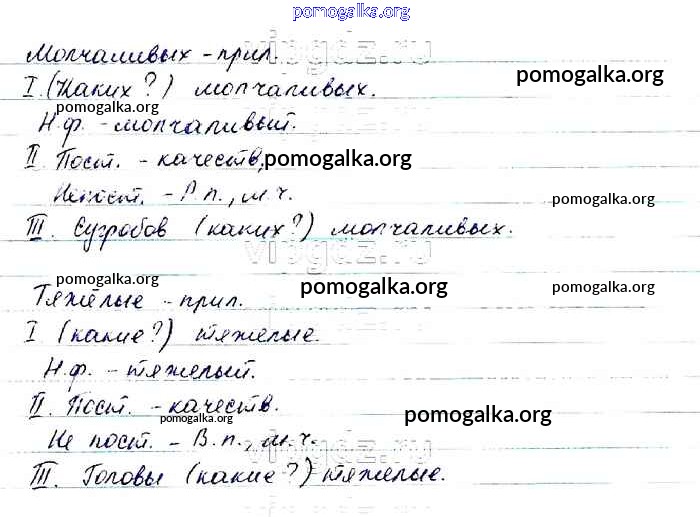 pomogalka.org
vipgdz.ru
Молчаливых - прил.
I. (Каких?) молчаливых.
pomogalka.org
pomogalka.org
Н.ф. - молчаливый.
II. Пост. - качеств,
pomogalka.org
Непост. - Р.п., м.ч.
pomogalka.org
III. Сугробов (каких?) молчаливых.
vipgdz.ru
pomogalka.org
pomogalka.org
pomogalka.org
Тяжёлые - прил.
I (какие?) тяжелые.
Н.ф. - тяжелый.
II. Пост. - качеств.
pomogalka.org
pomogalka.org
Не пост. - В.п., м.ч.
vipgdz.ru
III. Головы (какие?) - тяжелые.